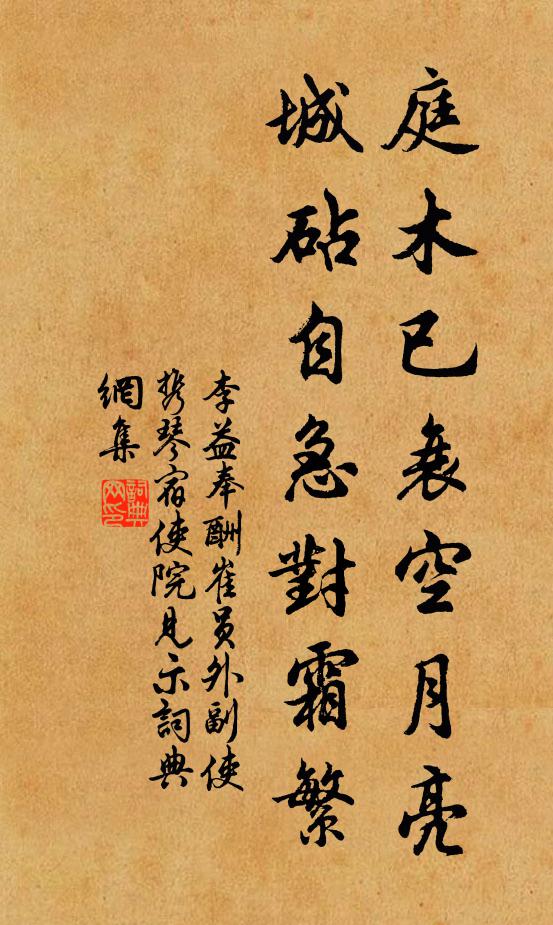 庭木已衰空月亮
城砧自急對霜繁
李益奉酬崔員外副使
携琴宿使院見示詞典
網集
詞典
网印